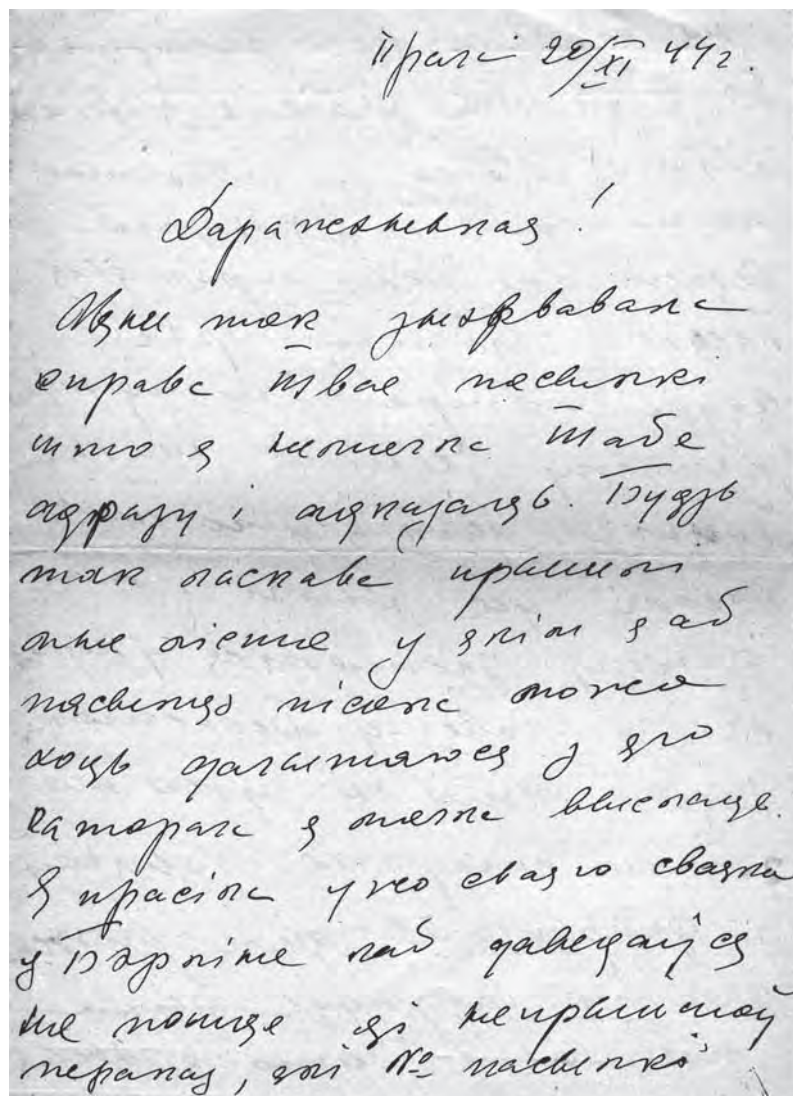 Прага 20/XI 44г.
Даражэнькая!
Мяне так знэрвавала
справа Твае пасылкі
што я немагла Табе
адразу і адказаць. Будзь
так ласкава прышлі
мне лісток у якім я аб
пасылцы пісала можа
хоць дагэтага з яго
каторага я магла выслаць.
Я прасіла ужо свайго сваяка
у Бэрліне каб даведаўся
на пошце ці непрышоў
пераказ, які № пасылкі